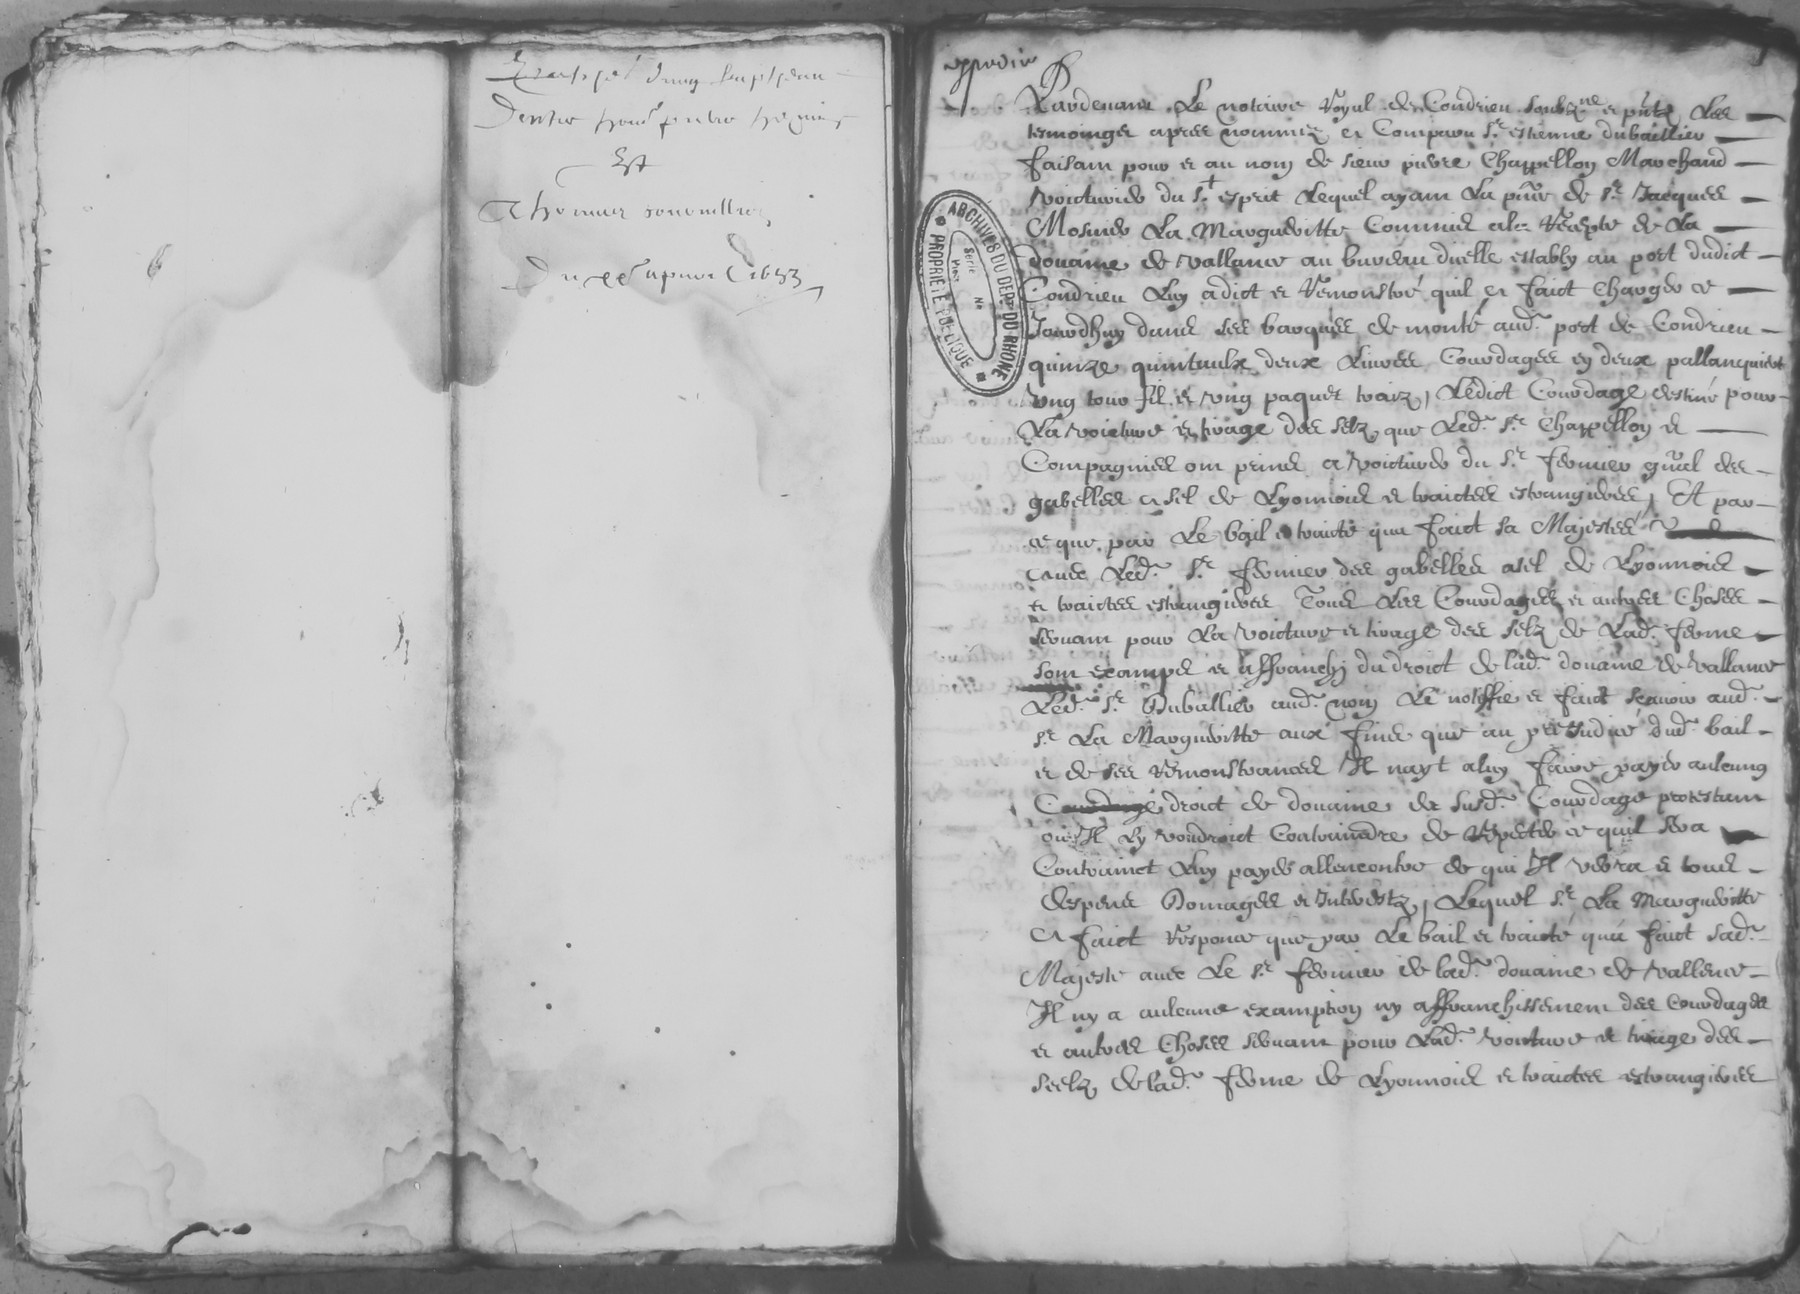 Dentre
Et
Du xx apvril 1653
ARCHIVES DU DEP.T DU RHONE
PROPRIETE PUBLIQUE
Serie
No
Pardevant Le notaire Royal de Condrieu soubz.ne et p.ntz Les
tesmoingz apres nommez et Comparu s.r estienne duballier
faisant pour et au nom de sieur pierre Chappellon Marchand
voicturier du s.t esprit Lequel ayant La p.nce de s.r Jacques
La Margueritte Commis a la Recepte de La
douaine de vallance au bureau dicelle estably au port dudict
Condrieu Luy a dict et Remonstré quil et faict Charger ce
Jourdhuy dans ses barques de monté aud. port de Condrieu
quinze quintaulx deux Livres Courdages en deux
ung tour fil et ung paquet Ledict Courdage destiné pour
La voicture et tirage des selz que Led. s.r Chappellon et
Compagnies ont prins a voicturer du s.r fermier g.nal des
gabelles a sel de Lyonnois et traictes estrangieres, Et par
ce que par Le bail et traicté qua faict sa Majestee
avec Led. s.r fermier des gabelles a sel de Lyonnois
et traictes estrangieres Tous Les Courdages et autres Choses
servant pour La voicture et tirage des selz de Lad. ferme
sont exampz et affranchj du droict de lad. douaine de vallance
Led. s.r Duballier aud. nom Le notiffie et faict scavoir aud.
s.r La Margueritte aux fins que au preiudice dud. bail
et de ses Remonstrances Il nayt a luy faire payer aulcung
droict de douaine de susd. Courdage protestant
ou Il Ly voudroict Contraindre de Repeter ce quil sera
Contrainct Luy payer allencontre de qui Il verra et tous
despens Domages et Interestz, Lequel s.r La Margueritte
A faict Responce que par Le bail et traicté qua faict sad.
Majeste avec Le s.r fermier de lad. douaine de vallence
Il ny a aulcune examption ny affranchissement des Courdages
et autres Choses servant pour Lad. voicture et tirage des
seelz de lad. ferme de Lyonnois et traictes estrangieres